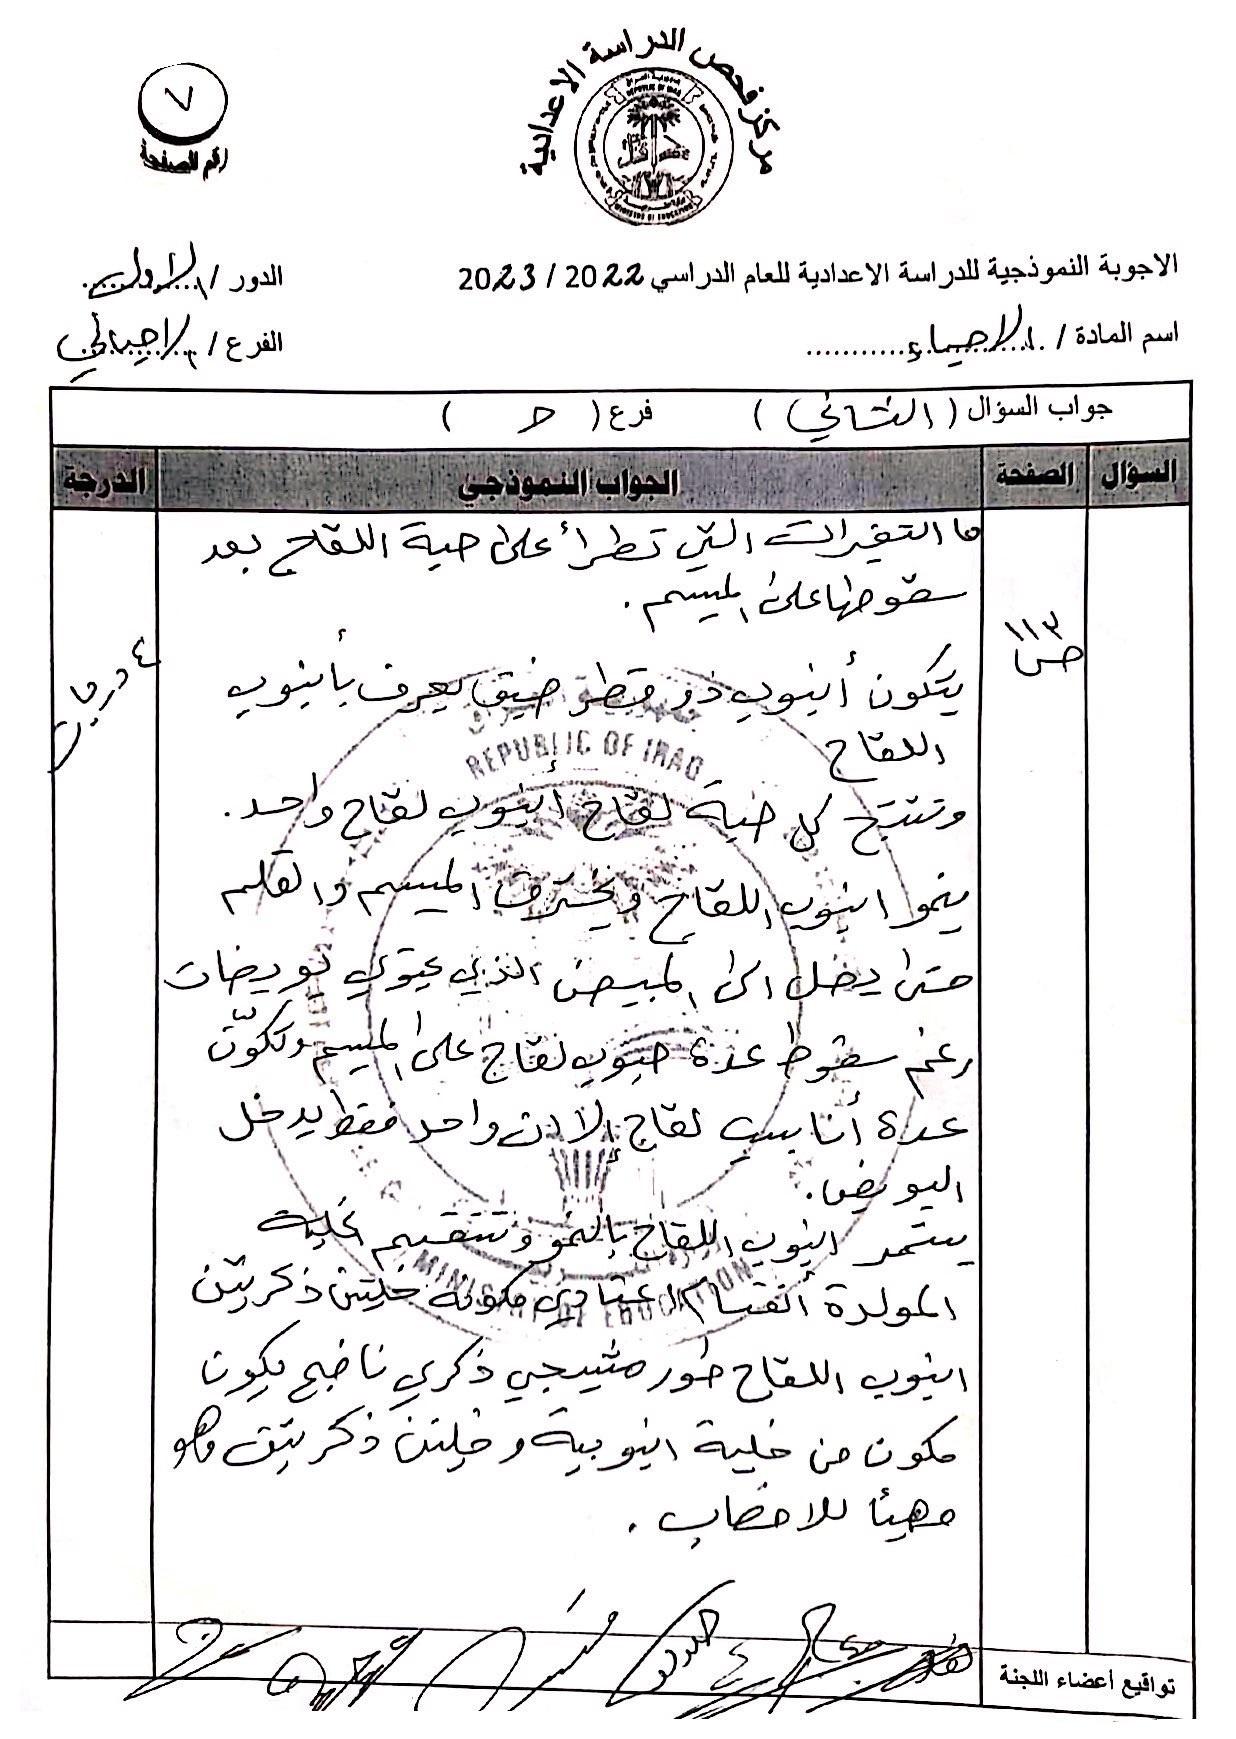 مركز فحص الدراسة الاعدادية
٧
رقم الصفحة
الاجوبة النموذجية للدراسة الاعدادية للعام الدراسي 2022 / 2023
الدور / الاول
اسم المادة / الاحياء
الفرع / الاحيائي
جواب السؤال ( الثاني ) فرع ( حـ )
السؤال الصفحة الجواب النموذجي الدرجة
ما التغيرات التي تطرأ على حبة اللقاح بعد
سقوطها على الميسم .
ص ١١٣
٤ درجات
يتكون أنبوب ذو قطر ضيق يعرف بأنبوب
اللقاح
وتنتج كل حبة لقاح أنبوب لقاح واحد .
ينمو انبوب اللقاح ويخترق الميسم والقلم
حتى يدخل الى المبيض الذي يحتوي بويضات
رغم سقوط عدة حبوب لقاح على الميسم وتكوّن
عدة أنابيب لقاح إلا ان واحد فقط يدخل
البويض .
يستمر انبوب اللقاح بالنمو وتنقسم الخلية
المولدة أنقسام اعتيادي مكونة خليتين ذكريتين
انبوب اللقاح طور مشيجي ذكري ناضج يكون
مكون من خلية انبوبية وخليتين ذكريتين وهو
مهيئا للاخصاب .
REPUBLIC OF IRAQ
MINISTRY OF EDUCATION
تواقيع أعضاء اللجنة